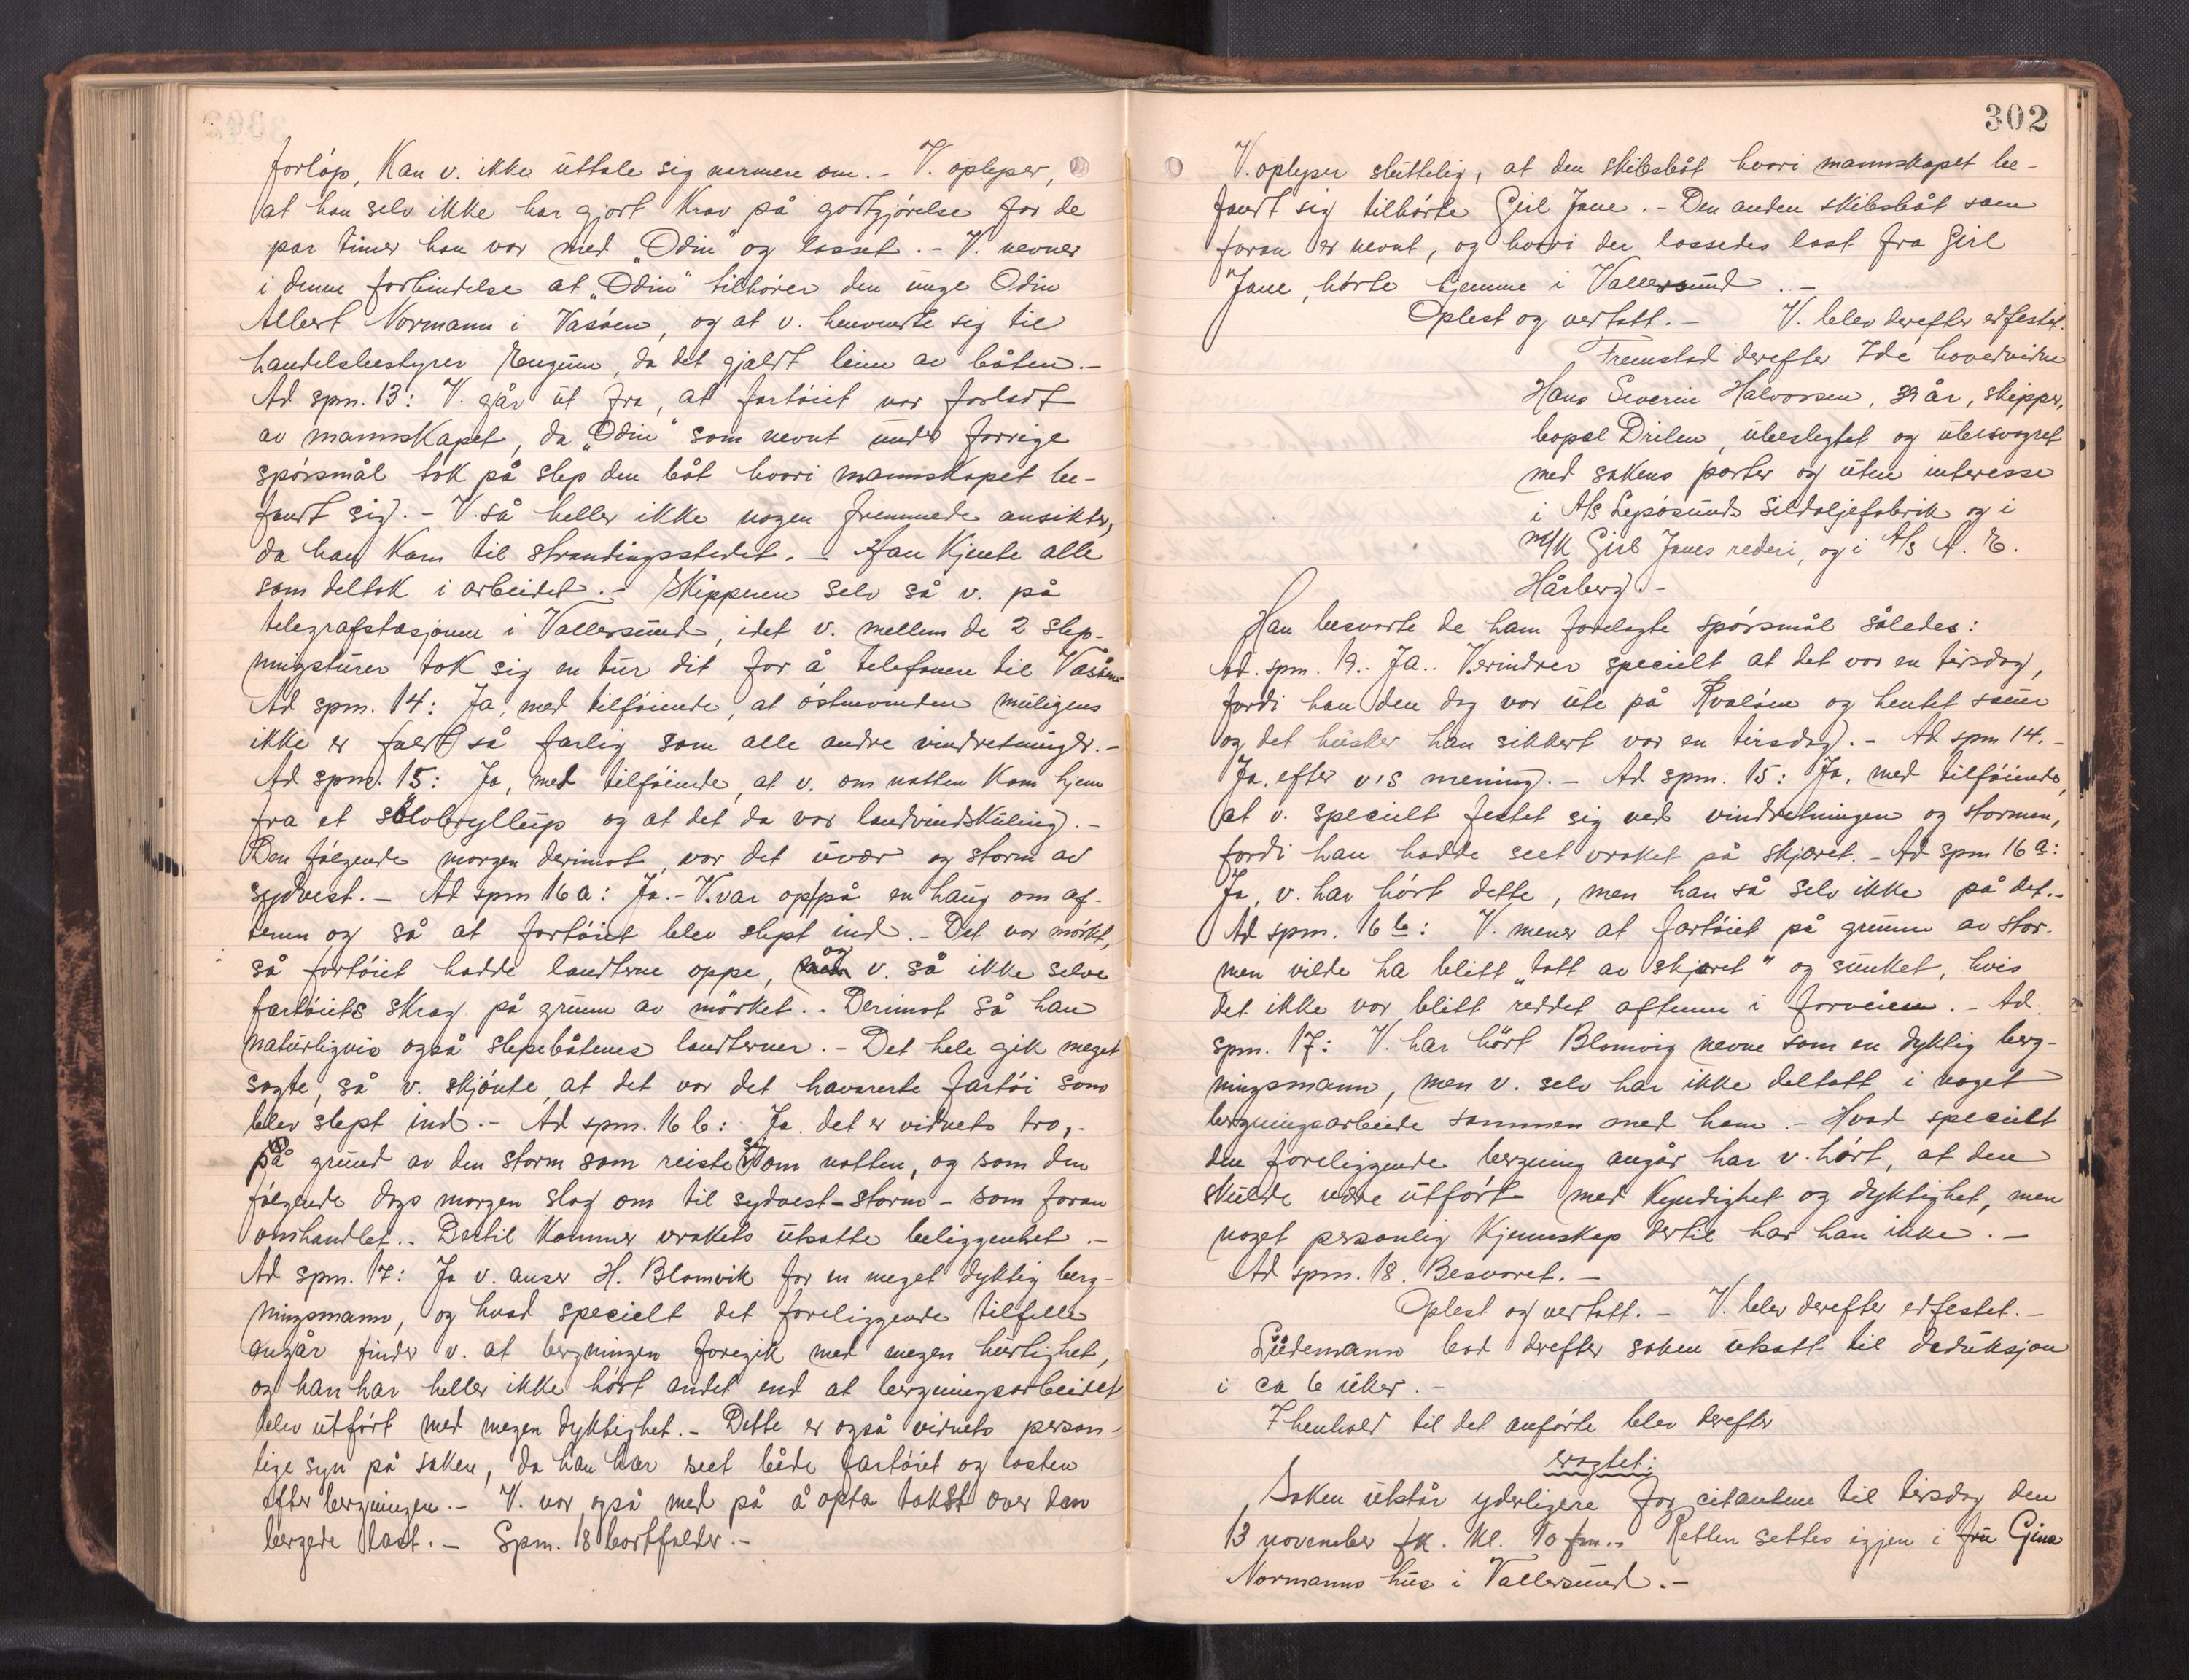 forløp, kan v. ikke uttale sig nermere om. - V. oplyser,
at han selv ikke har gjort krav på godtgjørelse for de
par timer han var med "Odin" og losset. - V. nevner
i denne forbindelse at "Odin" tilhører den unge Odin
Albert Normann i Vasøen, og at v. henvendte sig til
handelsbestyrer Engum, da det gjaldt leien av båten. -
Ad spm. 13: V. går ut fra, at fartøiet var forladt
av mannskapet, da "Odin" som nevnt under forrige
spørsmål tok på slep den båt hvori mannskapet be-
fandt sig. - V. så heller ikke nogen fremmede ansikter,
da han kom til strandingsstedet. - Han kjente alle
som deltok i arbeidet. - Skipperen selv så v. på
telegrafstasjonen i Vallersund, idet v. mellem de 2 slep-
ningsturer tok sig en tur dit for å telefonere til Vasøen.
Ad spm. 14: Ja, med tilføiende, at østenvinden muligens
ikke er fuldt så farlig som alle andre vindretninger. -
Ad spm. 15: Ja, med tilføiende, at v. om natten kom hjem
fra et sølvbryllup og at det da var landvindskuling. -
Den følgende morgen derimot, var det uvær og storm av
sydvest. - Ad spm 16 a: Ja. - V. var op på en haug om af-
tenen og så at fartøiet blev slept ind. - Det var mørkt,
så fartøiet hadde landterne oppe, og v. så ikke selve
fartøiets skrog på grunn av mørket. - Derimot så han
naturligvis også slepebåtenes landterner. - Det hele gik meget
sagte, så v. skjønte, at det var det havarerte fartøi som
blev slept ind. - Ad spm. 16 b: Ja. det er vidnets tro,
på grund av den storm som reiste sig om natten, og som den
følgende dags morgen slog om til sydvest-storm - som foran
omhandlet. - Dertil kommer vrakets utsatte beliggenhet. -
Ad spm. 17: Ja v. anser H. Blomvik for en meget dyktig berg-
ningsmann, og hvad specielt det foreliggende tilfelle
angår finder v. at bergningen foregik med megen hurtighet,
og han har heller ikke hørt andet end at bergningsarbeidet
blev utført med megen dyktighet. - Dette er også vidnets person-
lige syn på saken, da han har seet både fartøiet og lasten
efter bergningen. - V. var også med på å opta takst over den
bergede last. - Spm. 18 bortfalder. -
302
V. oplyser sluttelig, at den skibsbåt hvori mannskapet be-
fandt sig tilhørte Girl Jane. - Den anden skibsbåt som
foran er nevnt, og hvori der lossedes last fra Girl
Jane, hørte hjemme i Vallersund. -
Oplest og vertatt. - V. blev derefter edfestet.
Fremstod derefter 7de hovedvidne
Hans Severin Halvorsen, 39 år, skipper,
bopæl Drilen, ubeslegtet og ubesvogret
med sakens parter og uten interesse
i A/S Lepøsund Sildoljefabrik og i
M/K Girl Janes rederi, og i A/S A. E.
Hårberg. -
Han besvarte de ham forelagte spørsmål således:
Ad. spm. 19. - Ja. V. erindrer specielt at det var en tirsdag,
fordi han den dag var ute på Kvaløen og hentet sauer
og det husker han sikkert var en tirsdag. - Ad spm 14. -
Ja. efter v's mening. - Ad spm. 15: Ja, med tilføiende,
at v. specielt festet sig ved vindretningen og stormen,
fordi han hadde seet vraket på skjæret. - Ad spm 16 a:
Ja, v. har hørt dette, men han så selv ikke på det. -
Ad spm. 16 b: V. mener at fartøiet på grunn av stor-
men vilde ha blitt "tatt av skjæret" og sunket, hvis
det ikke var blitt reddet aftenen i forveien. - Ad
spm. 17: V. har hørt Blomvig nevne som en dyktig berg-
ningsmann, men v. selv har ikke deltatt i noget
bergningsarbeide sammen med ham. - Hvad specielt
den foreliggende bergning angår har v. hørt, at den
skulde være utført med kyndighet og dyktighet, men
noget personlig kjennskap dertil har han ikke. -
Ad spm. 18. Besvaret. -
Oplest og vertatt. - V. blev derefter edfestet. -
Lüdemann bad derefter saken utsatt til deduksjon
i ca 6 uker. -
I henhold til det anførte blev derefter
eragtet:
Saken utstår yderligere for citanten til tirsdag den
13 november fk. kl. 10 fm. - Retten settes igjen i fru Gina
Normanns hus i Vallersund. -